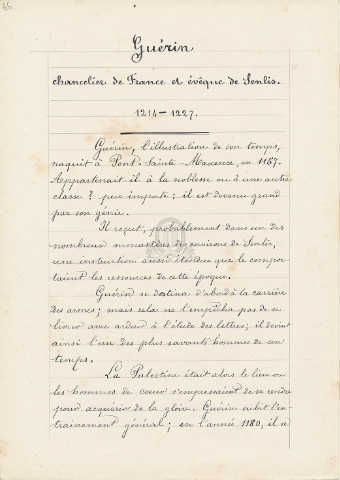 Guérin
chancelier de France et évêque de Senlis.
1214-1227.
Guérin, l'illustration de son temps,
naquit à Pont-Sainte-Maxence, en 1157.
Appartenait-il à la noblesse ou à une autre
classe ? peu importe ; il est devenu grand
par son génie.
Il reçut, probablement dans un des
nombreux monastères des environs de Senlis,
une instruction aussi étendue que le compor-
taient les ressources de cette époque.
Guérin se destina d'abord à la carrière
des armes ; mais cela ne l'empêcha pas de se
livrer avec ardeur à l'étude des lettres ; il devint
ainsi l'un des plus savants hommes de son
temps.
La Palestine était alors le lieu où
les hommes de cœur s'empressaient de se rendre
pour acquérir de la gloire. Guérin subit l'en-
traînement général ; en l'année 1180, il se